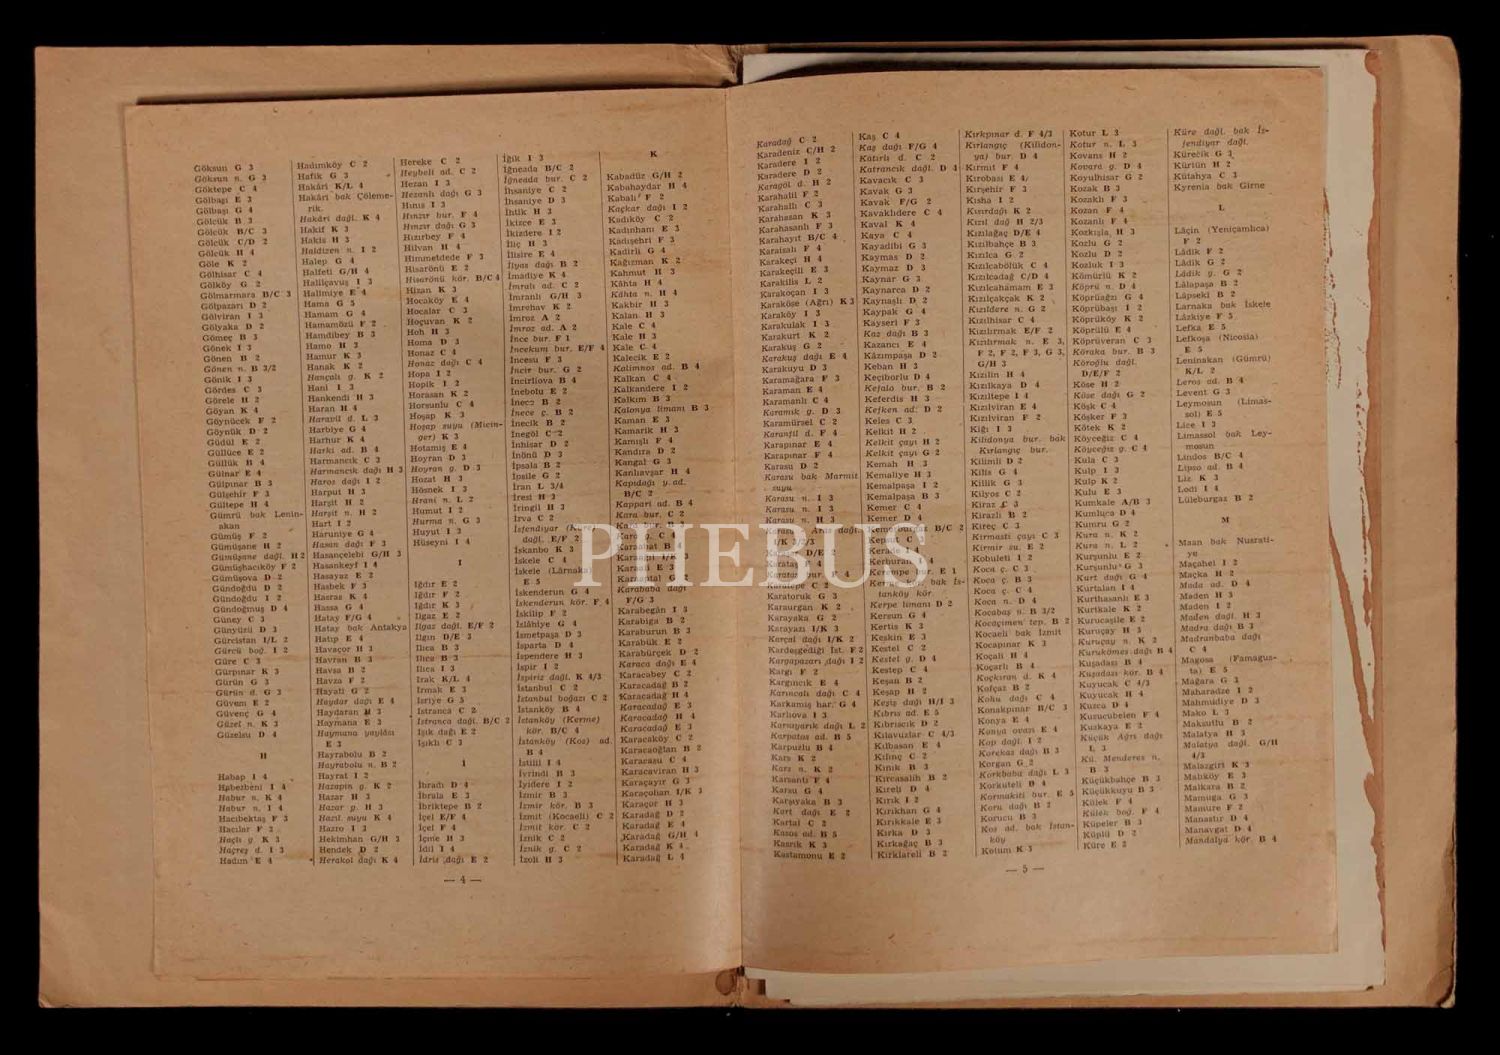 Göksun G 3
Göksun n. G 3
Göktepe C 4
Gölbaşı E 3
Gölbaşı G 4
Gölcük B 3
Gölcük B/C 3
Gölcük C/D 2
Gölcük H 4
Göle K 2
Gölhisar C 4
Gölköy G 2
Gölmarmara B/C 3
Gölpazarı D 2
Gölviran I 3
Gölyaka D 2
Gömeç B 3
Gönek I 3
Gönen B 2
Gönen n. B 3/2
Gönik I 3
Gördes C 3
Görele H 2
Göyan K 4
Göynücek F 2
Göynük D 2
Güdül E 2
Güllüce E 2
Güllük B 4
Gülnar E 4
Gülpınar B 3
Gülşehir F 3
Gültepe H 4
Gümrü bak Lenin-
akan
Gümüş F 2
Gümüşane H 2
Gümüşane dağl. H 2
Gümüşhacıköy F 2
Gümüşova D 2
Gündoğdu D 2
Gündoğdu I 2
Gündoğmuş D 4
Güney C 3
Günyüzü D 3
Gürcistan I/L 2
Gürcü boğ. I 2
Güre C 3
Gürpınar K 3
Gürün G 3
Gürün d. G 3
Güvem E 2
Güvenç G 4
Güzel n. K 3
Güzelsu D 4
H
Habap I 4
Habezbeni I 4
Habur n. K 4
Habur n. I 4
Hacıbektaş F 3
Hacılar F 3
Haçlı g. K 3
Haçreş d. I 3
Hadım E 4
Hadımköy C 2
Hafik G 3
Hakâri K/L 4
Hakâri bak Çöleme-
rik.
Hakâri dağl. K 4
Hakif K 3
Hakis H 3
Haldizen n. I 2
Halep G 4
Halfeti G/H 4
Halilçavuş I 3
Halimiye E 4
Hama G 5
Hamam G 4
Hamamözü F 2
Hamdibey B 3
Hamo H 3
Hamur K 3
Hanak K 2
Hançalı g. K 2
Hani I 3
Hankendi H 3
Haran H 4
Haravil d. L 3
Harbiye G 4
Harhur K 4
Harki ad. B 4
Harmancık C 3
Harmancık dağı H 3
Haros dağı I 2
Harput H 3
Harşit H 2
Harşit n. H 2
Hart I 2
Haruniye G 4
Hasan dağı F 3
Hasançelebi G/H 3
Hasankeyf I 4
Hasayaz E 2
Hasbek F 3
Hasras K 4
Hassa G 4
Hatay F/G 4
Hatay bak Antakya
Hatip E 4
Havaçor H 3
Havran B 3
Havsa B 2
Havza F 2
Hayati G 2
Haydar dağı E 4
Haydaran H 3
Haymana E 3
Haymana yaylâsı
E 3
Hayrabolu B 2
Hayrabolu n. B 2
Hayrat I 2
Hazapin g. K 2
Hazar H 3
Hazar g. H 3
Hazıl suyu K 4
Hazro I 3
Hekimhan G/H 3
Hendek D 2
Herakol dağı K 4
Hereke C 2
Heybeli ad. C 2
Hezan I 3
Hezanlı dağı G 3
Hınıs I 3
Hınzır bur. F 4
Hınzır dağı G 3
Hızırbey F 4
Hilvan H 4
Himmetdede F 3
Hisarönü E 2
Hisarönü kör. B/C 4
Hizan K 3
Hocaköy E 4
Hocalar C 3
Hoçuvan K 2
Hoh H 3
Homa D 3
Honaz C 4
Honaz dağı C 4
Hopa I 2
Hopik I 2
Horasan K 2
Horsunlu C 4
Hoşap K 3
Hoşap suyu (Micin-
ger) K 3
Hotamış E 4
Hoyran D 3
Hoyran g. D 3
Hozat H 3
Hösnek I 3
Hrani n. L 2
Humut I 2
Hurma n. G 3
Huyut I 3
Hüseyni I 4
I
Iğdır E 2
Iğdır F 2
Iğdır K 3
Ilgaz E 2
Ilgaz dağl. E/F 2
Ilgın D/E 3
Ilıca B 3
Ilıca B 3
Ilıca I 3
Irak K/L 4
Irmak E 3
Isriye G 5
Istranca C 2
Istranca dağl. B/C 2
Işık dağı E 2
Işıklı C 3
İ
İbradı D 4
İbrala E 3
İbriktepe B 2
İçel E/F 4
İçel F 4
İçme H 3
İdil I 4
İdris dağı E 2
İğik I 3
İğneada B/C 2
İğneada bur. C 2
İhsaniye C 2
İhsaniye D 3
İhtik H 3
İkizce E 3
İkizdere I 2
İliç H 3
İlisire E 4
İlyas dağı B 2
İmadiye K 4
İmralı ad. C 2
İmranlı G/H 3
İmrehav K 2
İmroz A 2
İmroz ad. A 2
İnce bur. F 1
İncekum bur. E/F 4
İncesu F 3
İncir bur. G 2
İncirliova B 4
İnebolu E 2
İnecz B 2
İnece ç. B 2
İnecik B 2
İnegöl C 2
İnhisar D 2
İnönü D 3
İpsala B 2
İpsile G 2
İran L 3/4
İresi H 3
İringil H 3
İrva C 2
İsfendiyar (Küre)
dağl. E/F 2
İskanbo K 3
İskele C 4
İskele (Lârnaka)
E 5
İskenderun G 4
İskenderun kör. F 4
İskilip F 2
İslâhiye G 4
İsmetpaşa D 3
İsparta D 4
İspendere H 3
İspir I 2
İspiriz dağl. K 4/3
İstanbul C 2
İstanbul boğazı C 2
İstanköy B 4
İstanköy (Kerme)
kör. B/C 4
İstanköy (Kos) ad.
B 4
İstilil I 4
İvrindi B 3
İyidere I 2
İzmir B 3
İzmir kör. B 3
İzmit (Kocaeli) C 2
İzmit kör. C 2
İznik C 2
İznik g. C 2
İzoli H 3
K
Kabadüz G/H 2
Kabahaydar H 4
Kabalı F 2
Kaçkar dağı I 2
Kadıköy C 2
Kadınhanı E 3
Kadışehri F 3
Kadirli G 4
Kağızman K 2
Kahmut H 3
Kâhta H 4
Kâhta n. H 4
Kakbir H 3
Kalan H 3
Kale C 4
Kale H 3
Kale C 4
Kalecik E 2
Kalimnos ad. B 4
Kalkan C 4
Kalkandere I 2
Kalkım B 3
Kalonya limanı B 3
Kaman E 3
Kamarik H 3
Kamışlı F 4
Kandıra D 2
Kangal G 3
Kanhavşar H 4
Kapıdağı y. ad.
B/C 2
Kappari ad. B 4
Kara bur. C 2
Kara g. C 4
Karaabat B 4
Karaağıl I/K 3
Karaali E 3
Karababa dağı
F/G 3
Karabegân I 3
Karabiga B 2
Karaburun B 3
Karabük E 2
Karabürçek D 2
Karaca dağı E 4
Karacabey C 2
Karacadağ B 2
Karacadağ H 4
Karacadağ E 3
Karacadağ H 4
Karacadağ E 3
Karacaköy C 2
Karacaoğlan B 2
Karacasu C 4
Karacaviran H 3
Karaçayır G 3
Karaçoban I/K 3
Karaçor H 3
Karadağ D 2
Karadağ E 4
Karadağ G/H 4
Karadağ K 4
Karadağ L 4
— 4 —
Karadağ C 2
Karadeniz C/H 2
Karadere I 2
Karadere D 2
Karagöl d. H 2
Karahalil F 2
Karahallı C 3
Karahasan K 3
Karahasanlı F 3
Karahayıt B/C 4
Karaisalı F 4
Karakeçi H 4
Karakeçili E 3
Karakilis L 2
Karakoçan I 3
Karaköse (Ağrı) K 3
Karaköy I 3
Karakulak I 3
Karakurt K 2
Karakuş G 2
Karakuş dağı E 4
Karakuyu D 3
Karamağara F 3
Karaman E 4
Karamanlı C 4
Karamık g. D 3
Karamürsel C 2
Karanfil d. F 4
Karapınar E 4
Karapınar F 4
Karasu D 2
Karasu bak Marmit
suyu
Karasu n. I 3
Karasu n. I 3
Karasu n. H 3
Karatepe C 2
Karatoruk G 3
Karaurgan K 2
Karayaka G 2
Karayazı I/K 3
Karçal dağı I/K 2
Kardeşgediği İst. F 2
Kargapazarı dağı I 2
Kargı F 2
Kargıncık E 4
Karıncalı dağı C 4
Karkamiş har. G 4
Karlıova I 3
Karniyarık dağı L 2
Karpatos ad. B 5
Karpuzlu B 4
Kars K 2
Kars n. K 2
Karsantı F 4
Karsu G 4
Karşıyaka B 3
Kart dağı E 2
Kartal C 2
Kasos ad. B 5
Kasrik K 3
Kastamonu E 2
Kaş C 4
Kaş dağı F/G 4
Katırlı d. C 2
Katrancık dağl. D 4
Kavacık C 3
Kavak G 3
Kavak F/G 2
Kavaklıdere C 4
Kaval K 4
Kaya C 4
Kayadibi G 3
Kaymas D 2
Kaymaz D 3
Kaynar G 3
Kaynarca D 2
Kaynaşlı D 2
Kaypak G 4
Kayseri F 3
Kaz dağı B 3
Kazancı E 4
Kâzımpaşa D 2
Keban H 3
Keçiborlu D 4
Kefalo bur. B 2
Keferdis H 3
Kefken ad. D 2
Keles C 3
Kelkit H 2
Kelkit çayı H 2
Kelkit çayı G 2
Kemah H 3
Kemaliye H 3
Kemalpaşa I 2
Kemalpaşa B 3
Kemer C 4
Kemer D 4
Kemerburgaz B/C 2
Kepsut C 3
Kerempe bur. E 1
Kerme kör. bak İs-
tanköy kör.
Kerpe limanı D 2
Kersun G 4
Kertis K 3
Keskin E 3
Kestel C 2
Kestel g. D 4
Kestep C 4
Keşan B 2
Keşap H 2
Keşiş dağı H/I 3
Kıbrıs ad. E 5
Kıbrıscık D 2
Kılavuzlar C 4/3
Kılbasan E 4
Kılınç C 2
Kınık B 3
Kırcasalih B 2
Kıreli D 4
Kırık I 2
Kırıkhan G 4
Kırıkkale E 3
Kırka D 3
Kırkağaç B 3
Kırklareli B 2
Kırkpınar d. F 4/3
Kırlangıç (Kilidon-
ya) bur. D 4
Kırmıt F 4
Kırobası E 4
Kırşehir F 3
Kısha I 2
Kısırdağı K 2
Kızıl dağ H 2/3
Kızılağaç D/E 4
Kızılbahçe B 3
Kızılca G 2
Kızılcabölük C 4
Kızılcadağ C/D 4
Kızılcahamam E 3
Kızılçakçak K 2
Kızıldere n. G 2
Kızılhisar C 4
Kızılırmak E/F 2
Kızılırmak n. E 3,
F 2, F 2, F 3, G 3,
G/H 3
Kızılin H 4
Kızılkaya D 4
Kızıltepe I 4
Kızılviran E 4
Kızılviran F 2
Kiğı I 3
Kilidonya bur. bak
Kırlangıç bur.
Kilimli D 2
Kilis G 4
Killik G 3
Kilyos C 2
Kiraz C 3
Kirazlı B 2
Kireç C 3
Kirmasti çayı C 3
Kirmir su. E 2
Kobuleti I 2
Koca ç. C 3
Koca ç. B 3
Koca ç. C 4
Koca n. D 4
Kocabaş n. B 3/2
Kocaçimen tep. B 2
Kocaeli bak İzmit
Kocapınar K 3
Koçali H 4
Koçarlı B 4
Koçkıran d. K 4
Kofçaz B 2
Kohu dağı C 4
Konakpınar B/C 3
Konya E 4
Konya ovası E 4
Kop dağı I 2
Korekas dağı B 3
Korgan G 2
Korkbaba dağı L 3
Korkuteli D 4
Kormakiti bur. E 5
Koru dağı B 2
Korucu B 3
Kos ad. bak İstan-
köy
Kotum K 3
Kotur L 3
Kotur n. L 3
Kovans H 2
Kovara g. D 4
Koyulhisar G 2
Kozak B 3
Kozaklı F 3
Kozan F 4
Kozanlı F 4
Kozkışla H 3
Kozlu G 2
Kozlu D 2
Kozluk I 3
Kömürlü K 2
Köprü n. D 4
Köprüağzı G 4
Köprübaşı I 2
Köprüköy K 2
Köprülü E 4
Köprüveran C 3
Köraka bur. B 3
Köroğlu dağl.
D/E/F 2
Köse H 2
Köse dağı G 2
Köşk C 4
Köşker F 3
Kötek K 2
Köyceğiz C 4
Köyceğiz g. C 4
Kula C 3
Kulp I 3
Kulp K 2
Kulu E 3
Kumkale A/B 3
Kumluca D 4
Kumru G 2
Kura n. K 2
Kura n. L 2
Kurşunlu E 2
Kurşunlu G 3
Kurt dağı G 4
Kurtalan I 4
Kurthasanlı E 3
Kurtkale K 2
Kurucaşile E 2
Kuruçay H 3
Kuruçay n. K 2
Kurukömes dağı B 4
Kuşadası B 4
Kuşadası kör. B 4
Kuyucak C 4/3
Kuyucak H 4
Kuzca D 4
Kuzucubelen F 4
Kuzkaya E 2
Küçük Ağrı dağı
L 3
Kü. Menderes n.
B 3
Küçükbahçe B 3
Küçükkuyu B 3
Külek F 4
Külek boğ. F 4
Küpeler B 3
Küplü D 2
Küre E 2
Küre dağl. bak İs-
fendiyar dağl.
Kürecik G 3
Kürtün H 2
Kütahya C 3
Kyrenia bak Girne
L
Lâçin (Yeniçamlıca)
F 2
Lâdik F 2
Lâdik G 2
Lâdik g. G 2
Lâlapaşa B 2
Lâpseki B 2
Larnaka bak İskele
Lâzkiye F 5
Lefka E 5
Lefkoşa (Nicosia)
E 5
Leninakan (Gümrü)
K/L 2
Leros ad. B 4
Levent G 3
Leymosun (Limas-
sol) E 5
Lice I 3
Limassol bak Ley-
mosun
Lindos B/C 4
Lipso ad. B 4
Liz K 3
Lodi I 4
Lüleburgaz B 2
M
Maan bak Nusrati-
ye
Maçahel I 2
Maçka H 2
Mada ad. D 4
Maden H 3
Maden I 2
Maden dağl. H 3
Madra dağı B 3
Madranbaba dağı
C 4
Magosa (Famagus-
ta) E 5
Mağara G 3
Maharadze I 2
Mahmudiye D 3
Mako L 3
Maksutlu B 2
Malatya H 3
Malatya dağl. G/H
4/3
Malazgirt K 3
Malıköy E 3
Malkara B 2
Mamuga G 3
Mamure F 2
Manastır D 4
Manavgat D 4
Mandalya kör. B 4
— 5 —
PHEBUS